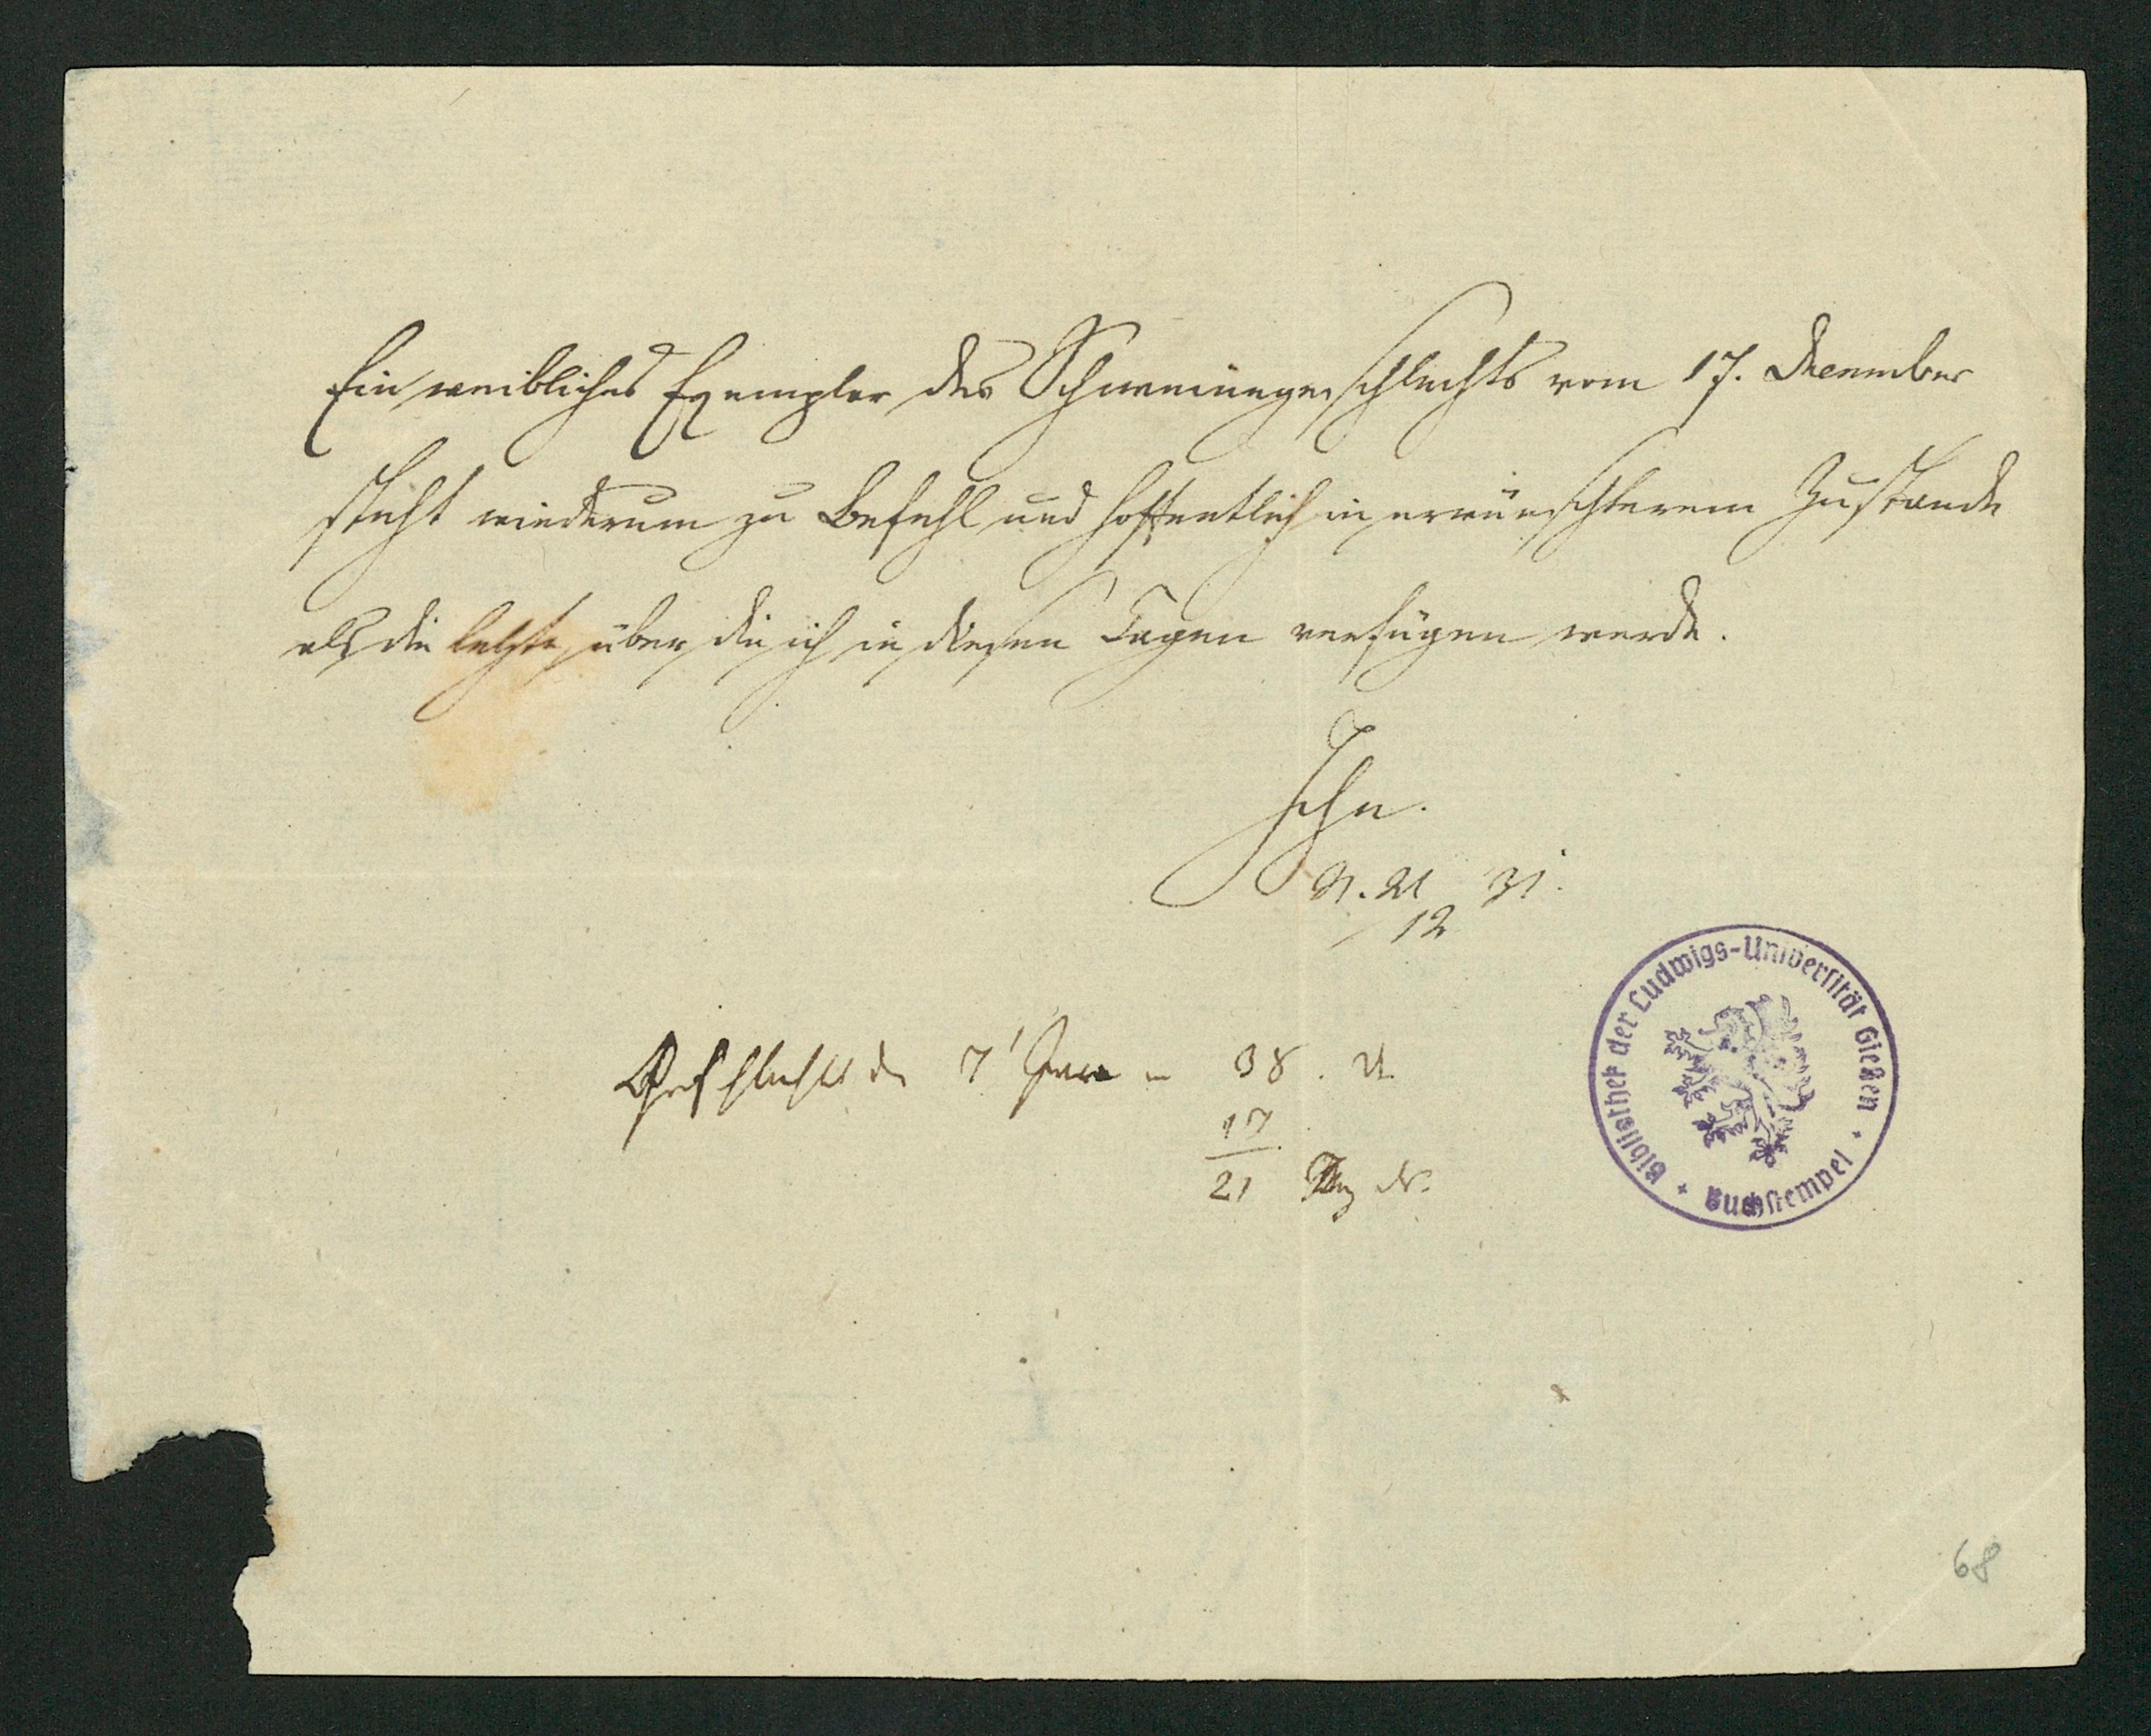 Ein weibliches Exemplar des Schweinegeschlechts vom 17. December
steht wiederum zu Befehl und hoffentlich in erwünschterem Zustande
als die letzte, über die ich in diesen Tagen verfügen werde.
21
12
31.
Geschlachtet d. 7 Jan
38.
17
21
Bibliothek der Ludwigs-Universität Gießen
Buchstempel
68